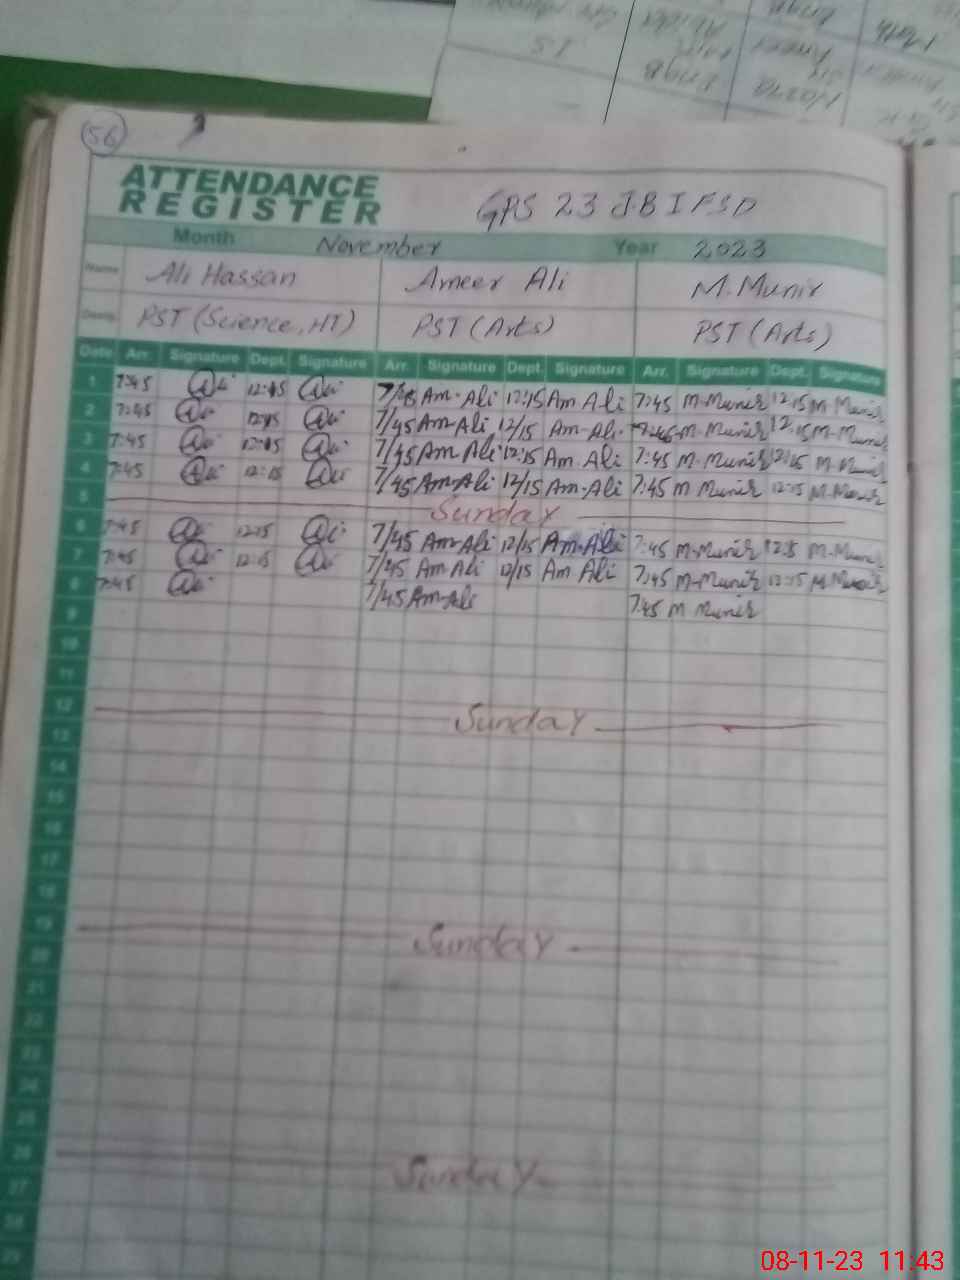 56
ATTENDANCE
REGISTER
GPS 23 JB I FSD
Month November Year 2023
Name Ali Hassan Ameer Ali M.Munir
PST (Science, HT) PST (Arts) PST (Arts)
Date Arr. Signature Dept. Signature Arr. Signature Dept. Signature Arr. Signature Dept. Signature
1 7:45 12:15 Am-Ali 12:15 Am Ali 7:45 M-Munir 12:15 M Munir
2 7:45 12:15 7/45 Am-Ali 12/15 Am-Ali M-Munir 12:15 M-Munir
3 7:45 12:15 7/45 Am Ali 12:15 Am Ali 7:45 M-Munir 12:15 M-Munir
4 7:45 12:15 7/45 Am-Ali 12/15 Am-Ali 7:45 M Munir 12:15 M-Munir
5 Sunday
6 7:45 12:15 7/45 Am-Ali 12/15 Am-Ali 7:45 M-Munir 12:15 M-Munir
7 7:45 12:15 7/45 Am Ali 12/15 Am Ali 7:45 M-Munir 12:15 M Munir
8 7:45 7/45 Am-Ali 7:45 M Munir
9
10
11
12 Sunday
13
14
15
16
17
18
19 Sunday
20
21
22
23
24
25
26 Sunday
27
28
29
08-11-23 11:43